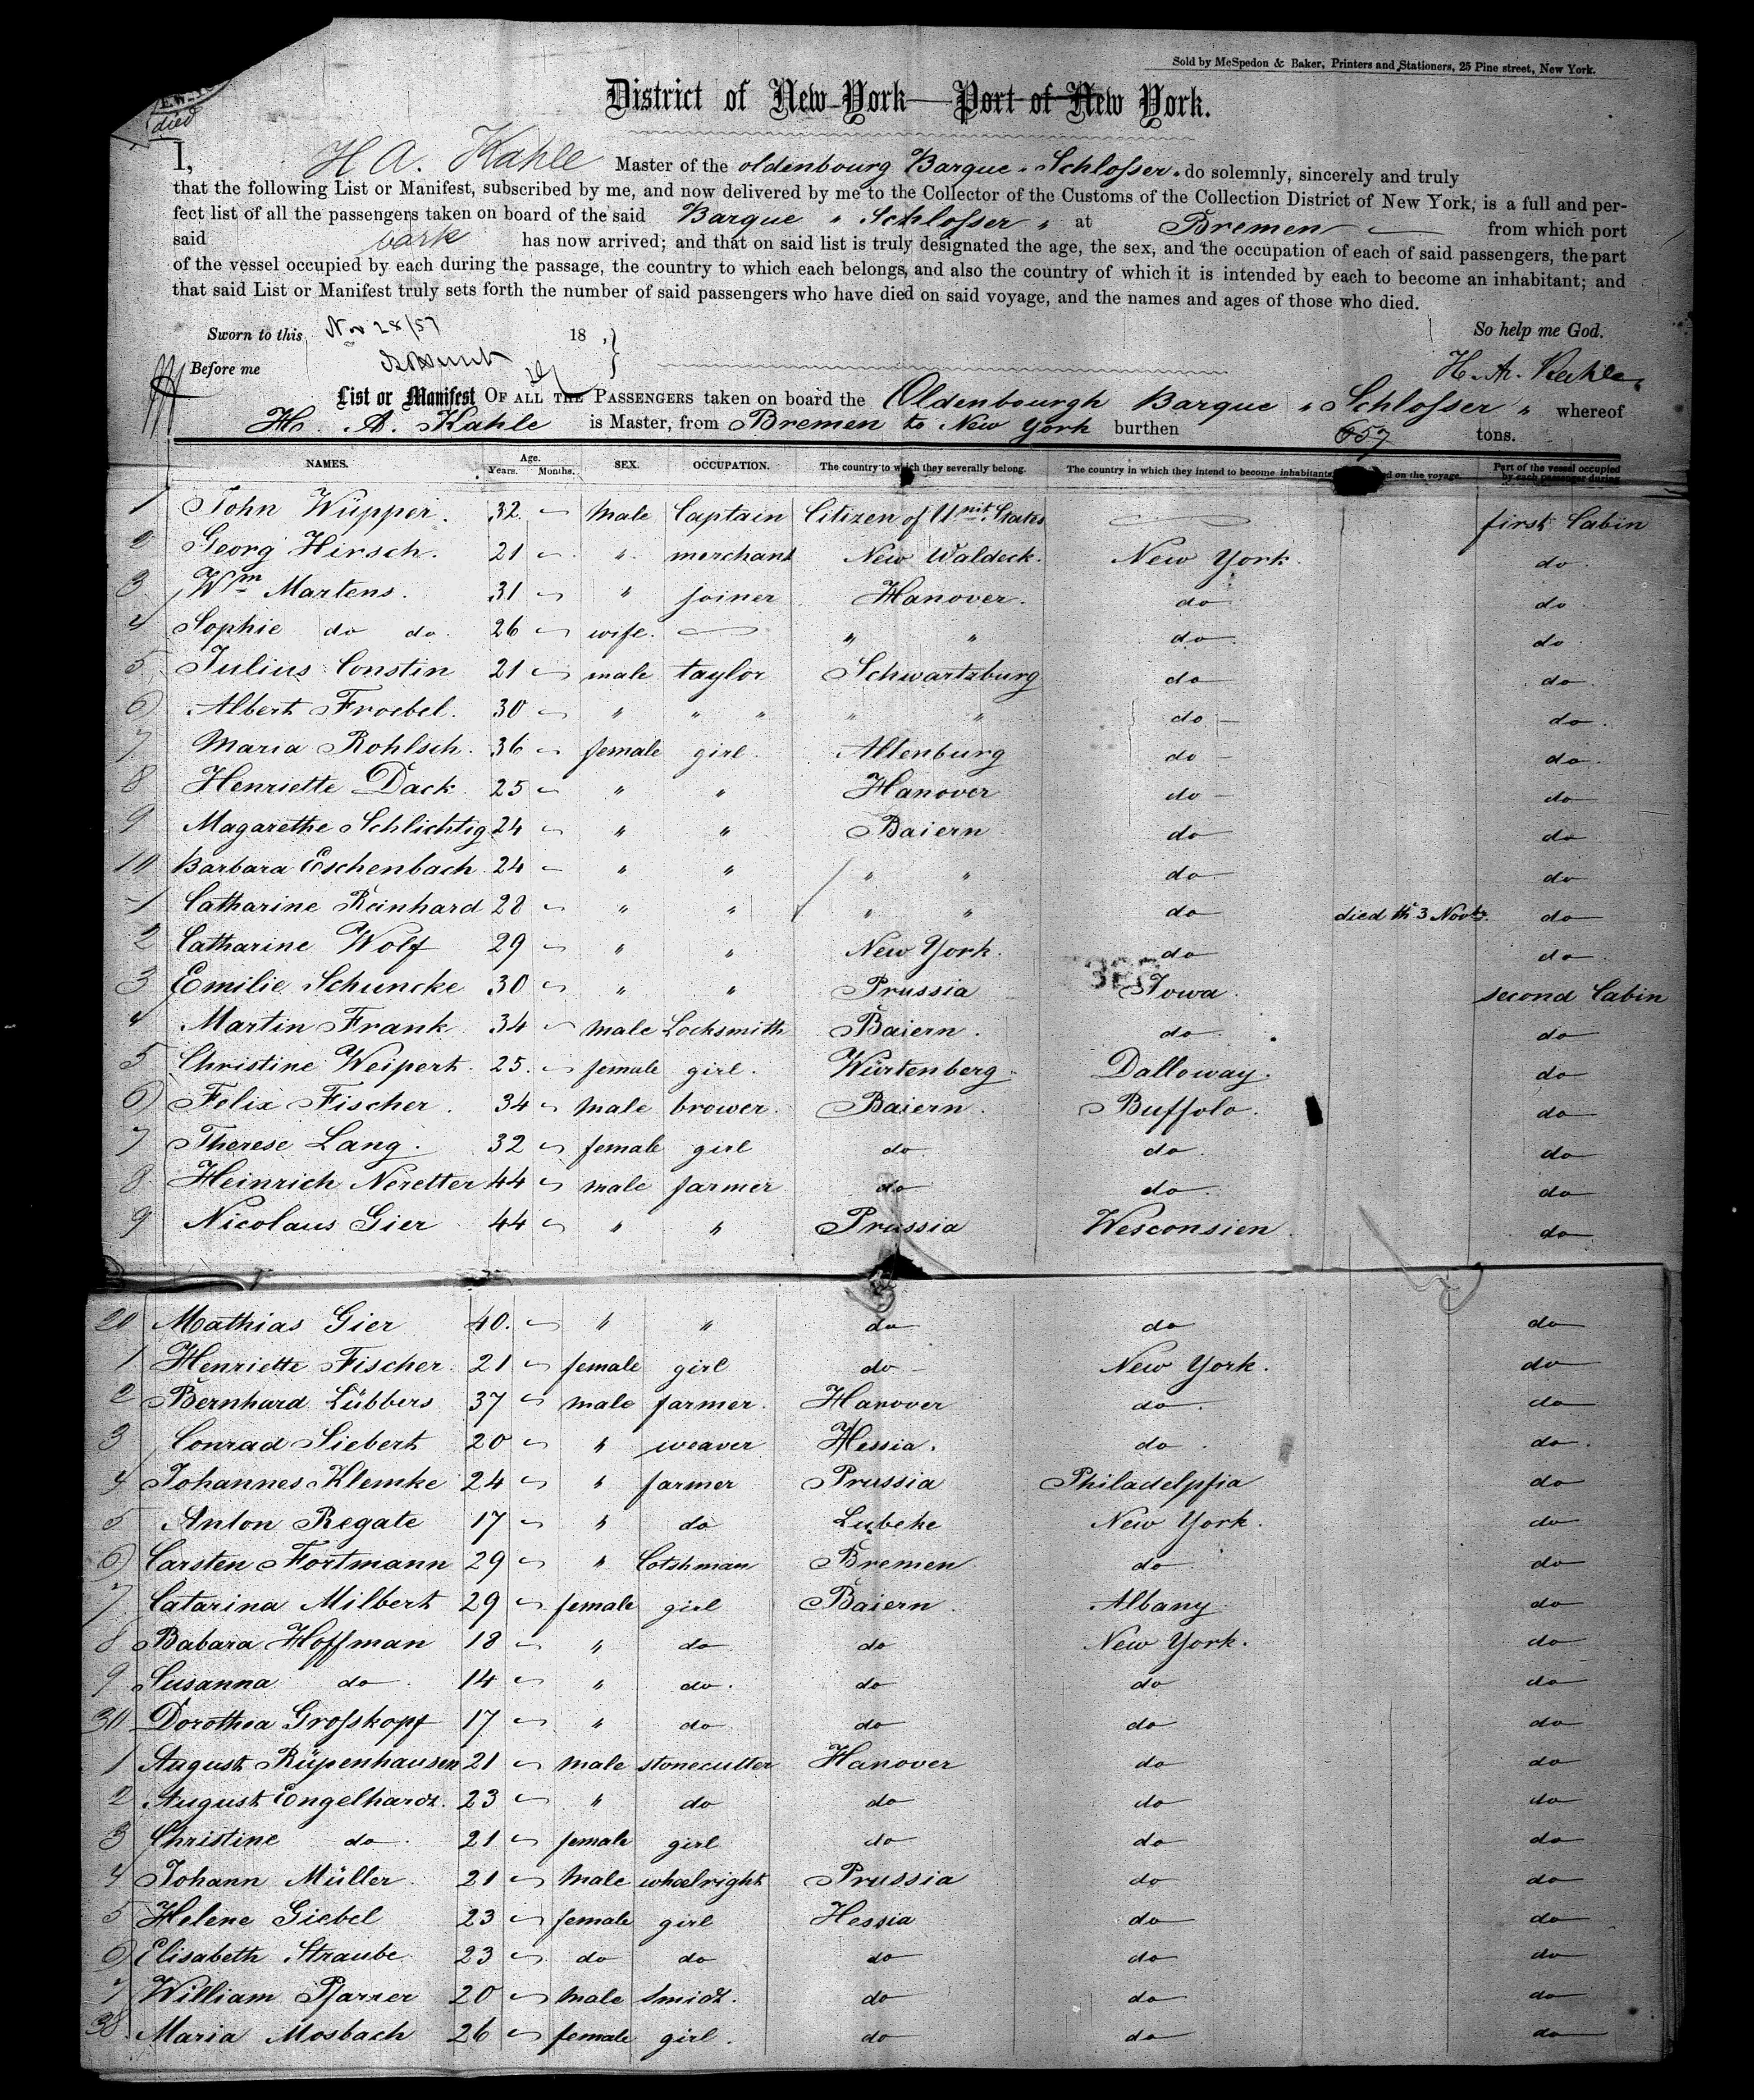 Sold by McSpedon & Baker, Printers and Stationers, 25 Pine street, New York.
died
District of New-York—Port of New York.
I, H A. Kahle Master of the oldenbourg Barque „ Schlosser „ do solemnly, sincerely and truly
that the following List or Manifest, subscribed by me, and now delivered by me to the Collector of the Customs of the Collection District of New York, is a full and per-
fect list of all the passengers taken on board of the said Barque „ Schlosser „ at Bremen — from which port
said bark has now arrived; and that on said list is truly designated the age, the sex, and the occupation of each of said passengers, the part
of the vessel occupied by each during the passage, the country to which each belongs, and also the country of which it is intended by each to become an inhabitant; and
that said List or Manifest truly sets forth the number of said passengers who have died on said voyage, and the names and ages of those who died.
Sworn to this Nov 28/57 18 , So help me God.
Before me H. A. Kahle.
List or Manifest OF ALL THE PASSENGERS taken on board the Oldenbourgh Barque „ Schlosser „ whereof
H. A. Kahle is Master, from Bremen to New York burthen 657 tons.
NAMES. Age. Years. Months. SEX. OCCUPATION. The country to which they severally belong. The country in which they intend to become inhabitants. on the voyage. Part of the vessel occupied by each passenger during
1 John Wüpper. 32. — Male Captain Citizen of Unit. States — first Cabin
2 Georg Hirsch. 21 — " merchant New Waldeck. New York. do.
3 Wm Martens. 31 — " joiner Hanover. do do
4 Sophie do do. 26 — wife. — " " do do
5 Julius Constin 21 — male taylor Schwartzburg do do.
6 Albert Froebel. 30 — " " " " " do — do.
7 Maria Rohlsch. 36 — female girl. Altenburg do — do.
8 Henriette Dack. 25 — " " Hanover do — do
9 Magarethe Schlichtig 24 — " " Baiern do do
10 Barbara Eschenbach 24 — " " " " do do
1 Catharine Reinhard 28 — " " " " do died th 3 Novbr. do
2 Catharine Wolf 29 — " " New York. do do.
3 Emilie Schuncke 30 — " " Prussia Iowa. second Cabin
4 Martin Frank 34 — male Locksmith Baiern. do. do
5 Christine Weipert. 25. — female girl. Würtenberg. Dalloway. do
6 Felix Fischer. 34 — male brower. Baiern. Buffolo. do
7 Therese Lang. 32 — female girl do do. do
8 Heinrich Neretter 44 — male farmer do do. do
9 Nicolaus Gier 44 — " " Prussia Wesconsien. do
20 Mathias Gier 40. — " " do do do
1 Henriette Fischer. 21 — female girl do — New York. do
2 Bernhard Lübbers 37 — male farmer. Hanover do. do
3 Conrad Siebert 20 — " weaver Hessia. do. do.
4 Johannes Klemke 24 — " farmer Prussia Philadelpfia do
5 Anton Regate 17 — " do Lubeke New York. do
6 Carsten Fortmann 29 — " Cotshman Bremen do do
7 Catarina Milbert 29 — female girl Baiern. Albany do
8 Babara Hoffman 18 — " do do New York. do
9 Susanna do. 14 — " do. do do do
30 Dorothea Grosskopf 17 — " do. do do do
1 August Rüpenhausen 21 — male stonecutter Hanover do do
2 August Engelhardt. 23 — " do do do do
3 Christine do. 21 — female girl do do do
4 Johann Müller. 21 — Male wheelright Prussia do do
5 Helene Giebel 23 — female girl Hessia do do
6 Elisabeth Straube 23 — do do do do do
7 William Pfarrer 20 — male smidt. do do do
38 Maria Mosbach 26 — female girl. do do do